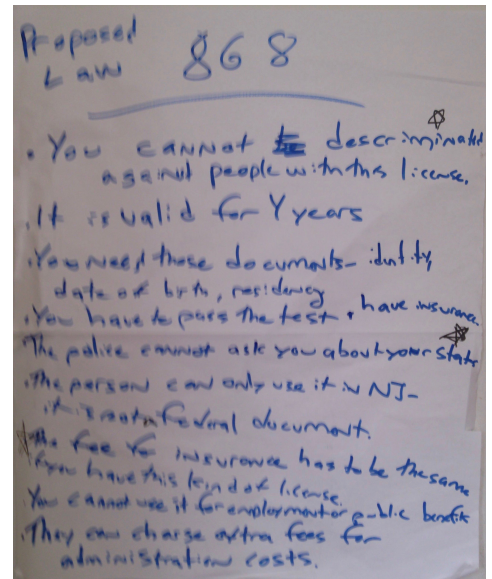 Proposed
Law
868
• You cannot descriminated
against people with this license.
• It is valid for Y years
• You need these documents - idntity,
date of birth, residency
• You have to pass the test • have insurance
The police cannot ask you about your status
• The person can only use it in NJ -
it is not a federal document.
The fee for insurance has to be the same
if you have this kind of license.
• You cannot use it for employment or public benefits
• They can charge extra fees for
administration costs.